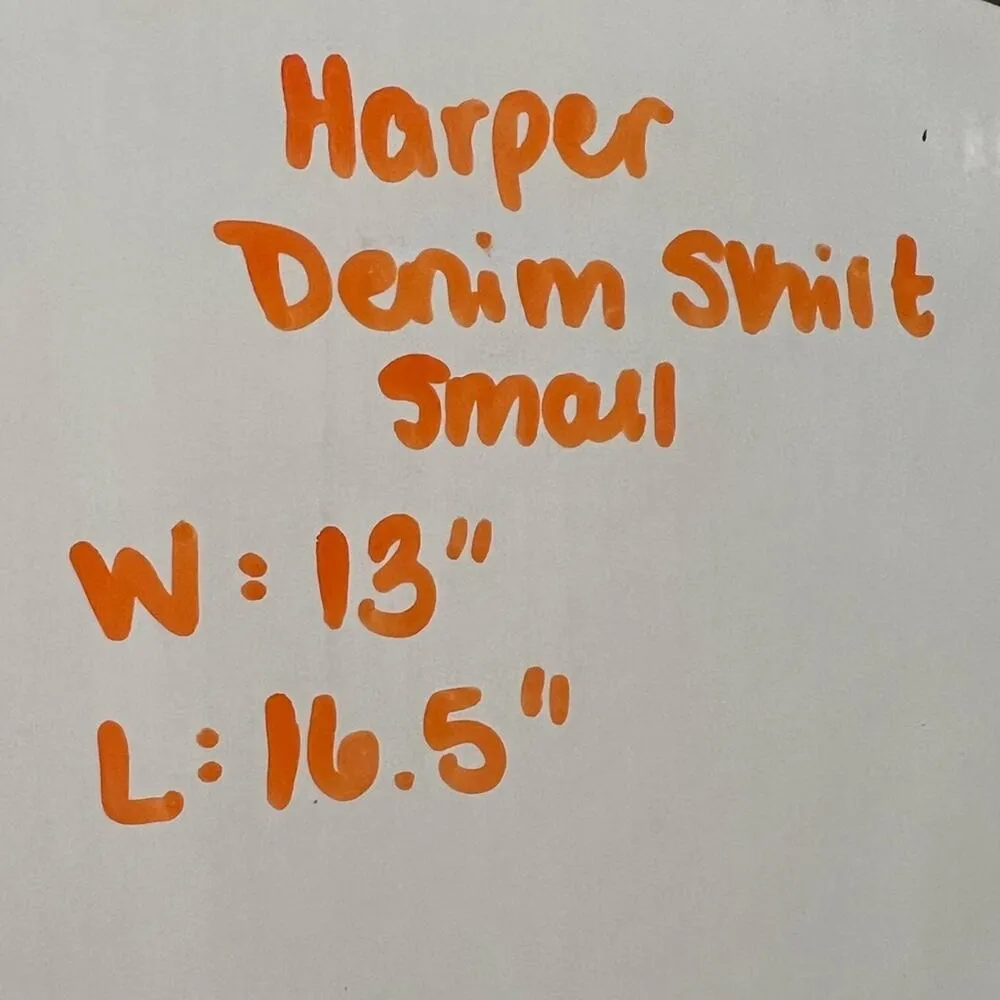 Harper
Denim Skirt
Small
W: 13"
L: 16.5"